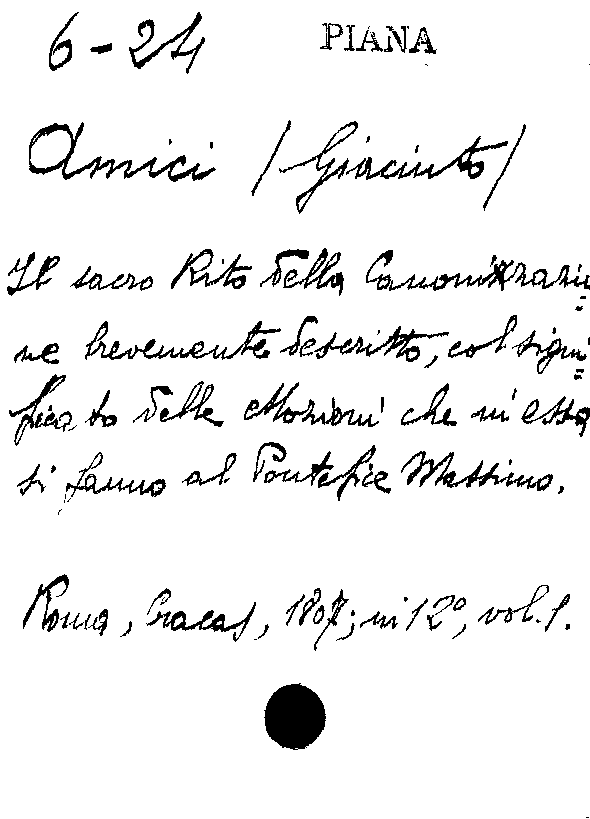 6-24 PIANA
Amici (Giacinto)
Il sacro Rito della Canonizzazio=
ne brevemente descritto, col signi=
ficato delle Mozioni che in essa
si fanno al Pontefice Massimo.
Roma, Cracas, 1807; in 12º, vol. 1.